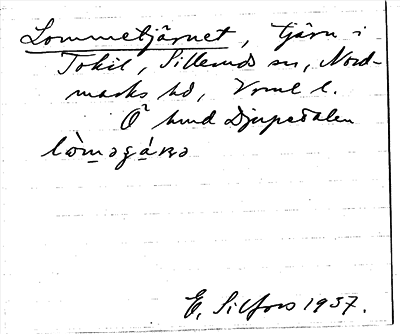 Lommetjärnet, tjärn i
Tokil, Sillerud sn, Nord-
marks hd, Vrml l.
Ö hmd Djupedalen
lò̀m̲əʒá̲ɴə
E, Silfors 1937.